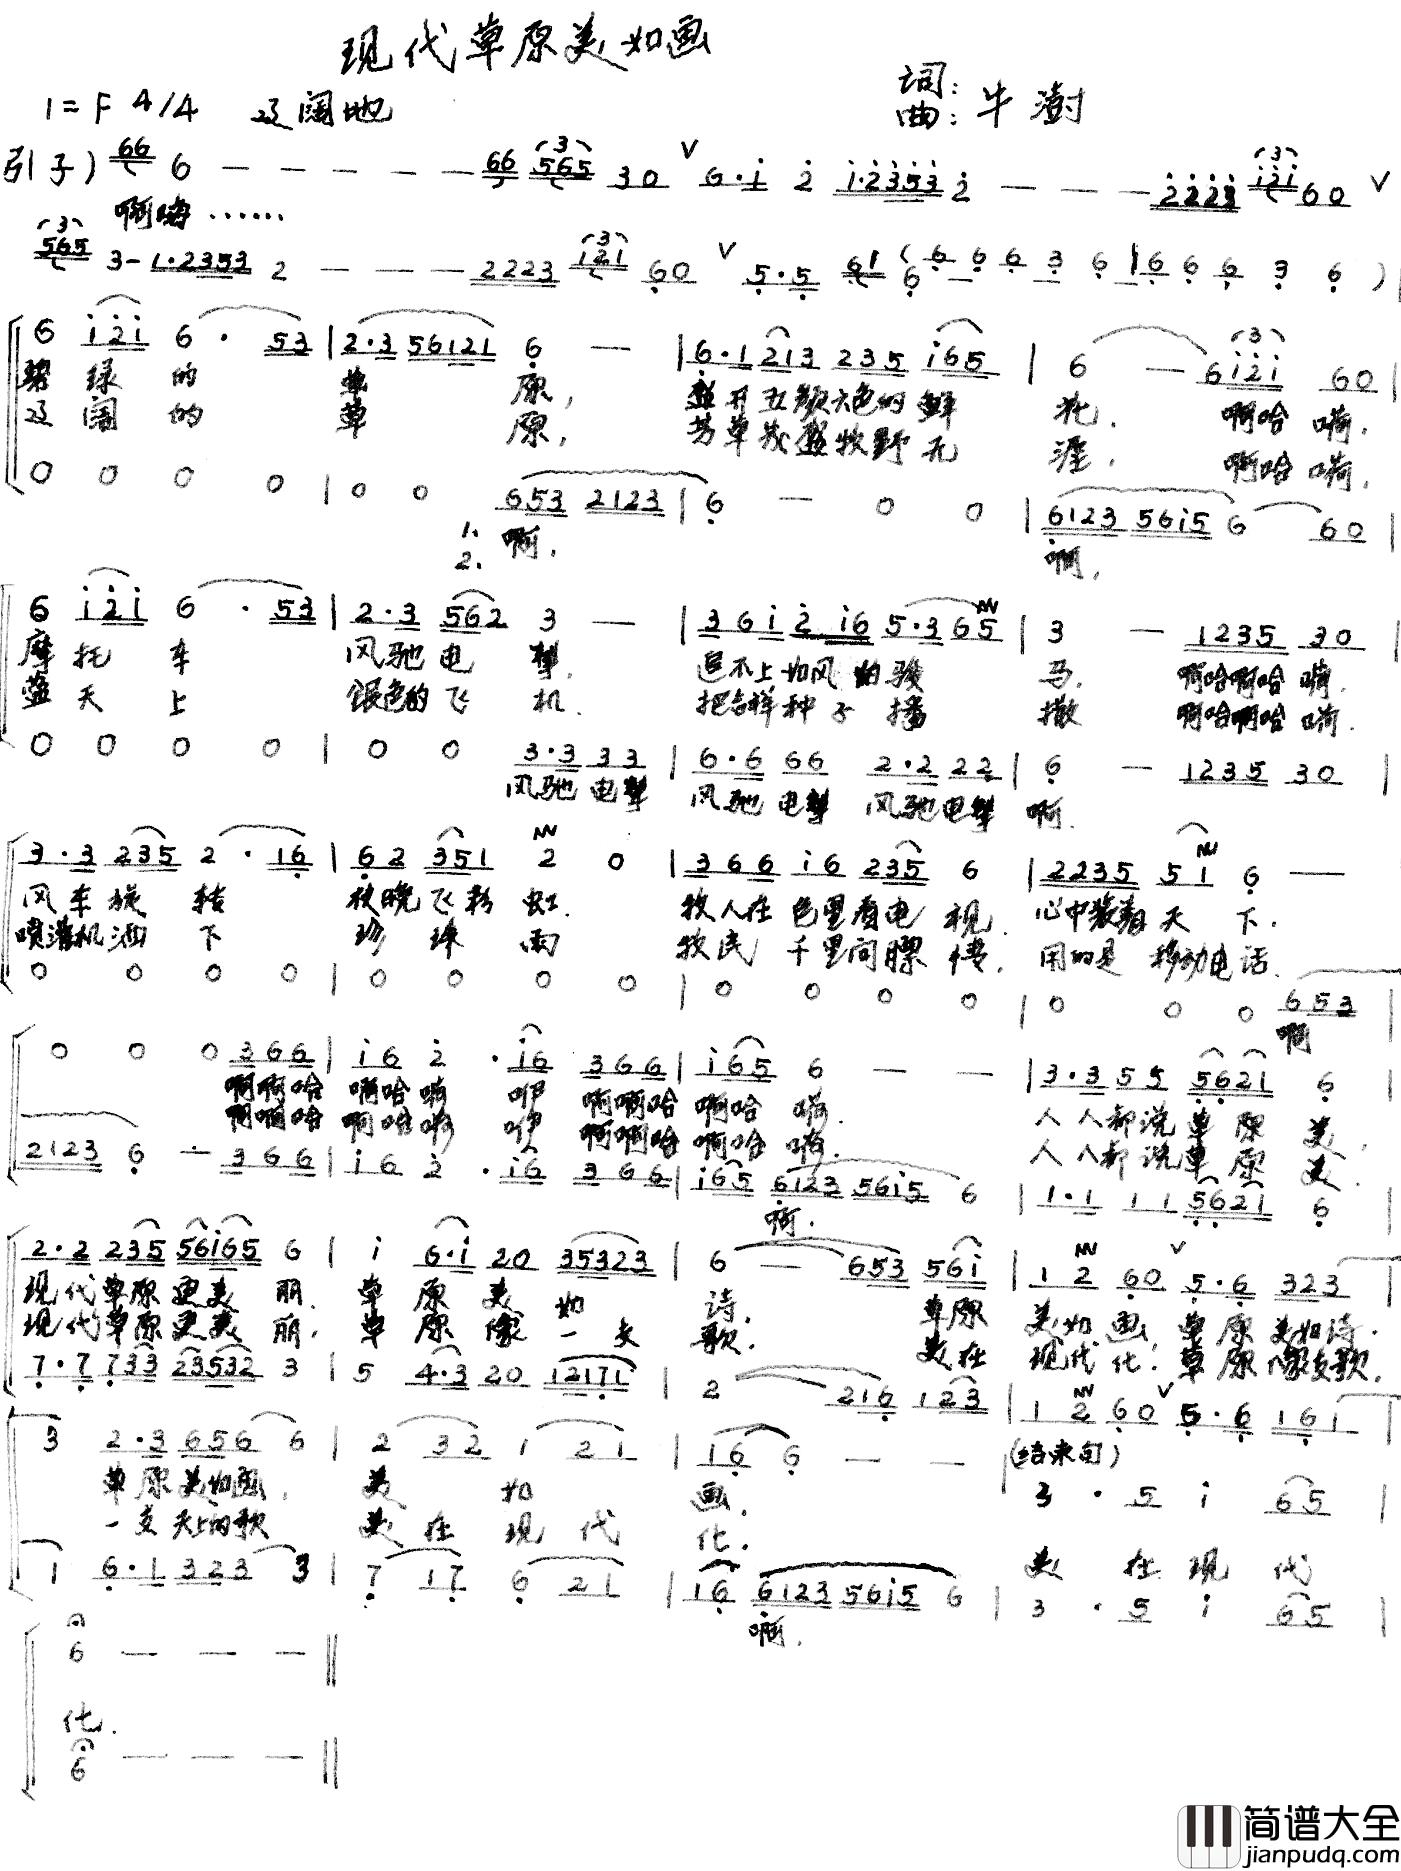 现代草原美如画
词:
1=F 4/4 辽阔地
曲: 牛澍
引子) 66 6 — — — — — 66 565 30 V 6·i 2 i·2353 2 — — — 2223 i2i 60 V
啊嗬……
565 3-1·2353 2 — — — 2223 i2i 60 V 5·5 61 (6 6 6 3 6 | 6 6 6 3 6 )
6 i2i 6 · 53 | 2·3 56121 6 — | 6·1 213 235 i65 | 6 — 6i2i 60 |
碧绿的 草 原, 盛开五颜六色的鲜 花. 啊哈嗬.
辽阔的 草 原, 芳草茂盛牧野无 涯. 啊哈嗬.
0 0 0 0 | 0 0 653 2123 | 6 — 0 0 | 6123 56i5 6 60 |
1. 啊. 啊.
2.
6 i2i 6 · 53 | 2·3 562 3 — | 3 6 i 2 i6 5·3 65 | 3 — 1235 30 |
摩托车 风驰电掣. 追不上如风的骏 马. 啊哈啊哈嗬.
蓝天上 银色的飞机. 把吉祥种子播 撒 啊哈啊哈嗬.
0 0 0 0 | 0 0 3·3 33 | 6·6 66 2·2 22 | 6 — 1235 30 |
风驰电掣 风驰电掣 风驰电掣 啊.
3·3 235 2 · 16 | 62 351 2 0 | 366 i6 235 6 | 2235 51 6 — |
风车旋转 夜晚飞彩虹. 牧人在 包里看电视. 心中装着天下.
喷灌机洒下 珍珠雨 牧民 千里问膘情. 用的是移动电话.
0 0 0 0 | 0 0 0 0 | 0 0 0 0 | 0 0 0 653 |
啊
0 0 0 366 | i6 2 · i6 366 | i65 6 — — | 3·3 55 5621 6 |
啊啊哈 啊哈嗬 咿 啊啊哈 啊哈嗬. 人人都说草原美.
啊啊哈 啊哈嗬 咿 啊啊哈 啊哈嗬. 人人都说草原美.
2123 6 — 366 | i6 2 · i6 366 | i65 6123 56i5 6 | 1·1 11 5621 6
啊.
2·2 235 56i65 6 | i 6·i 20 35323 | 6 — 653 56i | 12 60 V 5·6 323 |
现代草原更美丽. 草原美如 诗. 草原 美如画. 草原美如诗.
现代草原更美丽. 草原像一支 歌. 美在 现代化. 草原像支歌.
7·7 733 23532 3 | 5 4·3 20 12171 | 2 216 123 | 12 60 V 5·6 161 |
3 2·3 656 6 | 2 32 1 21 | 16 6 — — | (结束句)
3 · 5 i 65 |
草原美如画, 美 如 画.
一支天上的歌 美在现代 化. 美在现代
1 6·1 323 3 | 7 17 6 21 | 16 6123 56i5 6 | 3 · 5 i 65 |
啊.
6 — — — ‖
化.
6 — — — ‖
简谱大全
jianpudq.com